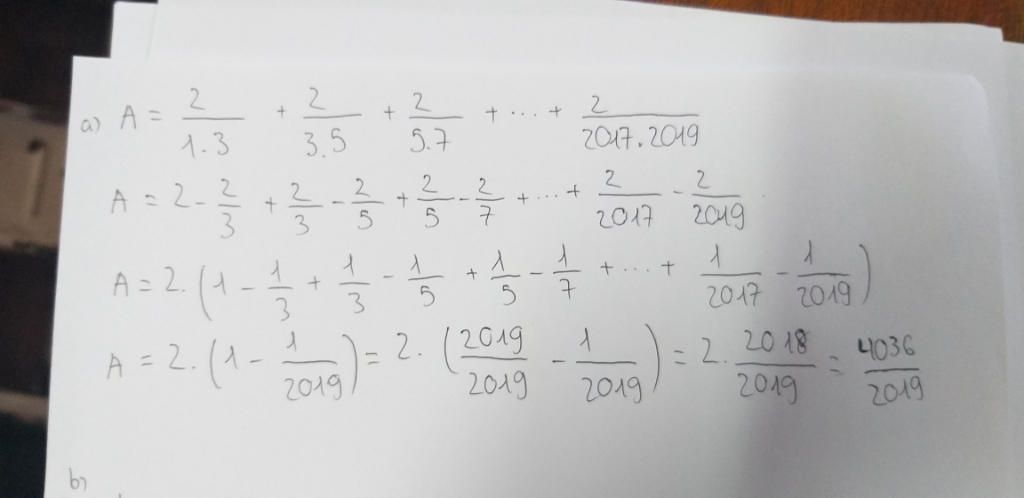 a) A = 2/1.3 + 2/3.5 + 2/5.7 + ... + 2/2017.2019
A = 2 - 2/3 + 2/3 - 2/5 + 2/5 - 2/7 + ... + 2/2017 - 2/2019
A = 2.(1 - 1/3 + 1/3 - 1/5 + 1/5 - 1/7 + ... + 1/2017 - 1/2019)
A = 2.(1 - 1/2019) = 2.(2019/2019 - 1/2019) = 2.2018/2019 = 4036/2019
b)